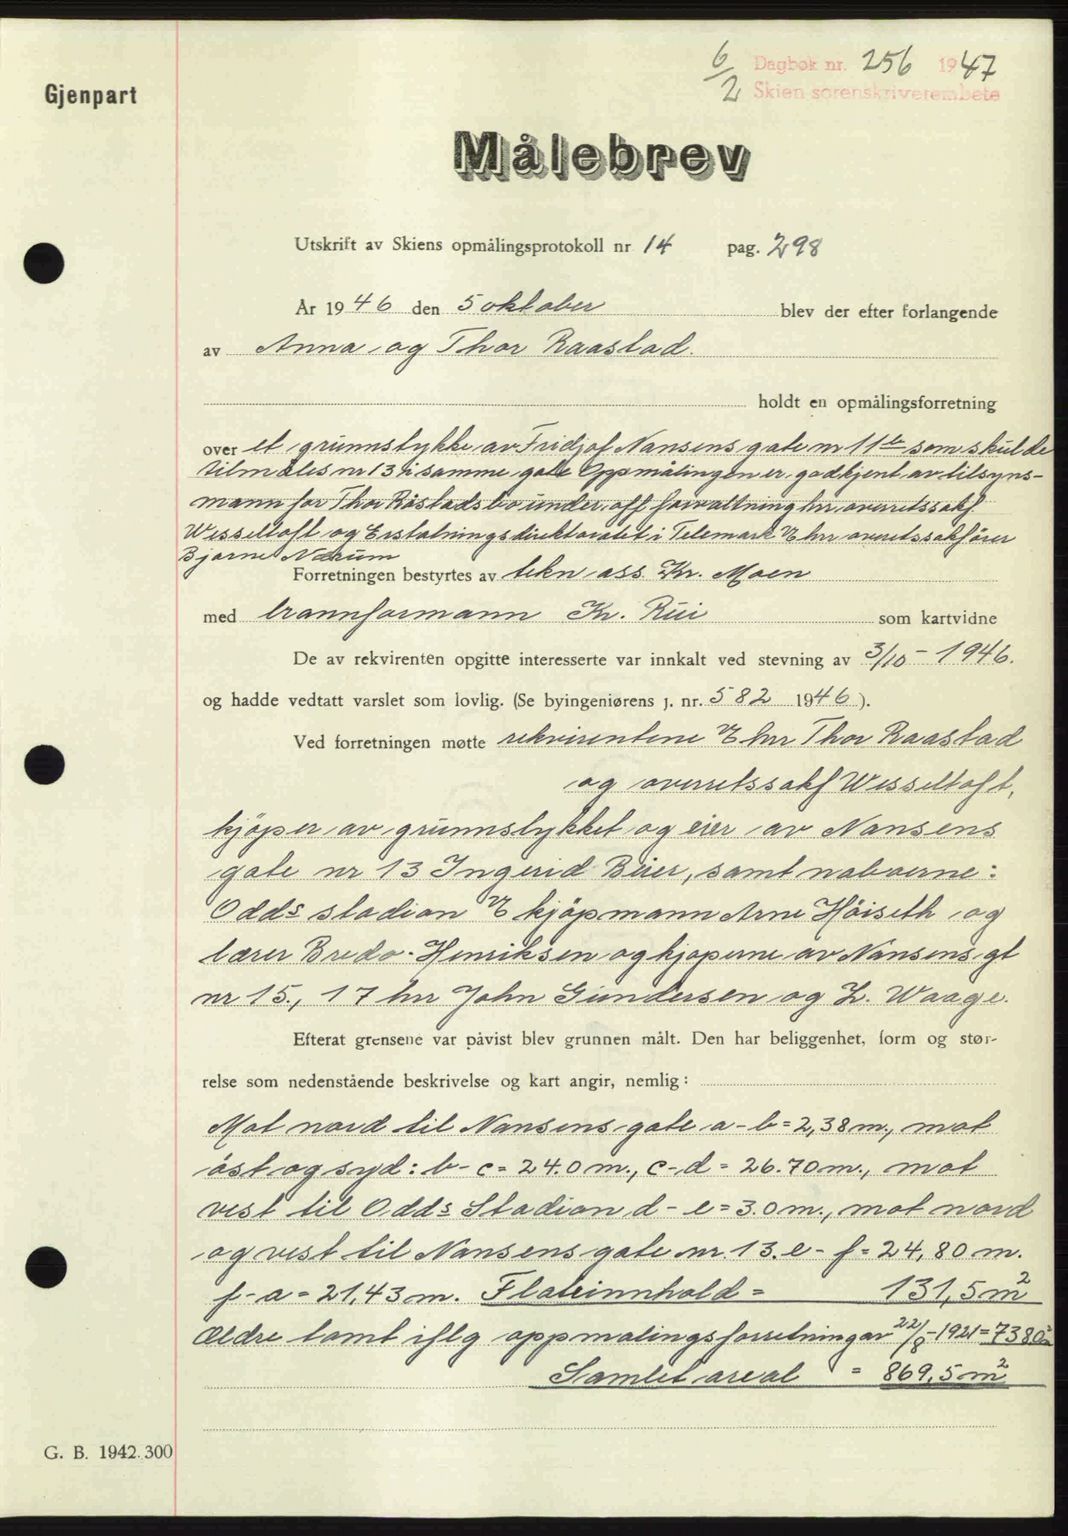 6/2 Dagbok nr. 256 1947
Skien sorenskriverembete
Gjenpart
Målebrev
Utskrift av Skiens opmålingsprotokoll nr 14 pag. 298
År 1946 den 5 oktober blev der efter forlangende
av Anna og Thor Raastad.
holdt en opmålingsforretning
over et grunnstykke av Fridjof Nansens gate nr 11 som skulde
tilmåles nr 13 i samme gate Oppmålingen er godkjent av tilsyns-
mann for Thor Råstads bo under off forvaltning hr. overretssakf
Wesseltoft og Erstatningsdirektoratet i Telemark V/ hr overretssakfører
Bjarne Nærum
Forretningen bestyrtes av tekn. ass. Kr. Moen
med brannformann Kr. Rui som kartvidne
De av rekvirenten opgitte interesserte var innkalt ved stevning av 3/10 - 1946.
og hadde vedtatt varslet som lovlig. (Se byingeniørens j. nr. 582 1946 ).
Ved forretningen møtte rekvirentene V/ hr Thor Raastad
og overretssakf Wesseltoft,
kjøper av grunnstykket og eier av Nansens
gate nr 13 Ingerid Beier, samt naboerne:
Odds stadion V/ kjøpmann Arne Høiseth og
lærer Bredo Henriksen og kjøperne av Nansens gt
nr 15, 17 hr John Gundersen og L. Waage.
Efterat grensene var påvist blev grunnen målt. Den har beliggenhet, form og stør-
relse som nedenstående beskrivelse og kart angir, nemlig:
Mot nord til Nansens gate a-b = 2,38 m., mot
øst og syd: b-c = 24.0 m., c-d = 26.70 m., mot
vest til Odds Stadion d-e = 3.0 m., mot nord
og vest til Nansens gate nr. 13. e-f = 24,80 m.
f-a = 21,43 m. Flateinnhold = 131,5 m²
Ældre tomt iflg oppmålingsforretning av 22/8-1921 = 738.0 m²
Samlet areal = 869,5 m²
G. B. 1942. 300